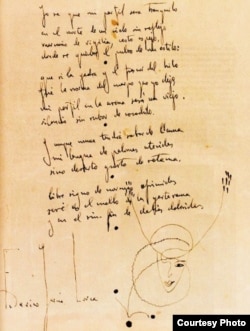 Yo se que mi perfil será tranquilo
en el norte de un cielo sin reflejo,
mercurio de vigilia, casto espejo
donde se quiebre el pulso de mi estilo.
que si la yedra y el frescor del hilo
fué la norma del cuerpo que yo dejo
mi perfil en la arena será un viejo
silencio sin rubor de cocodrilo.
Y aunque nunca tendrá sabor de llama
mi lengua de palomas ateridas
sino desierto gusto de retama,
libre signo de normas oprimidas
seré en el cuello de la yerta rama
y en el sin fin de dalias doloridas.
Federico García Lorca
Courtesy Photo